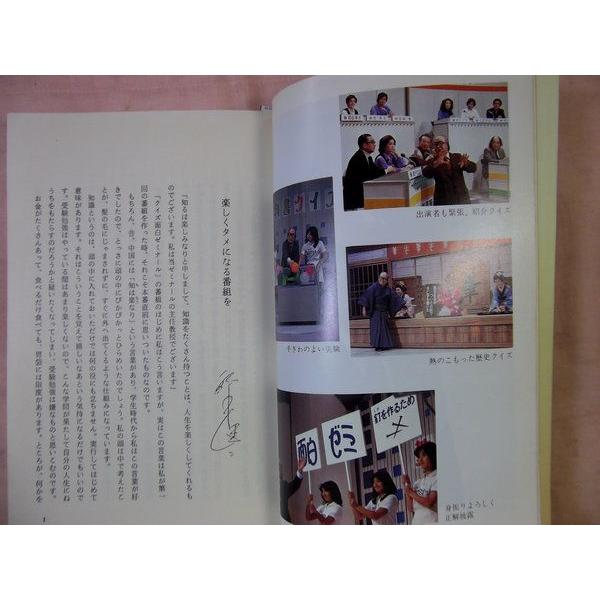 楽しくタメになる番組を
「知るは楽しみなりと申しまして、知識をたくさん持つことは、人生を楽しくしてくれるも
のでございます。私は当ゼミナールの主任教授でございます」
「クイズ面白ゼミナール」の番組のはじめに私はこう言いますが、実はこの言葉は私が第一
回の番組を作った時、それこそ本番直前に思いついたものなのです。
もちろん、昔、中国には「知は楽なり」という言葉があり、学生時代から私はこの言葉が好
きでしたので、とっさに頭の中にぴかぴかっとひらめいたのでしょう。私の頭は中で考えたこ
とが、髪の毛にじゃまされずに、すぐに外へ出てくるような仕組みになっています。
知識というのは、頭の中に入れておいただけでは何の役にも立ちません。実行してはじめて
意味があります。それはこういうことを覚えて嬉しいなあという気持になるだけでもいいので
す。受験勉強はやっている間はあまり楽しくないので、こんな学問が果たして自分の人生にね
うちをもたらすのだろうかと疑いたくなってしまい、受験勉強は嫌なものと思いこむのです。
お金がたくさんあって、食べるだけ食べても、胃袋には限度があります。ところが、何かを
1
出演者も緊張、紹介クイズ
手ぎわのよい実験
熱のこもった歴史クイズ
面白
ゼミ
釘を作るため
メ
身振りよろしく
正解披露